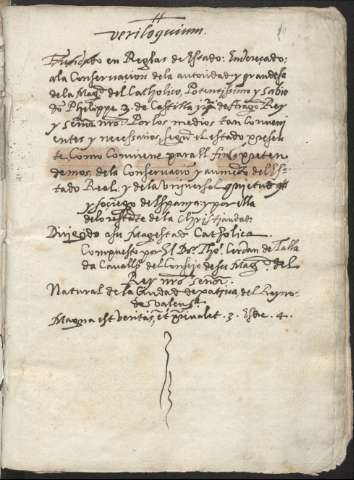 veriloquium.
Fundado en Reglas de Estado: Endereçado:
a la Conservacion de la autoridad y grandeza
de la Magd. del Catholico, Potentissimo y Sabio
Don Philippe 3. de Castilla y 2. de Aragon Rey
y Señor nro. Por los medios tan Conveni
entes y necessarios, segun el estado presen
te. Como Conviene para el fin q pretén
demos de la Conservacion y aumento del Es
tado Real. y de la Universal quietud
y sosiego de España y por ella
del restante de la Christiandad:
Dirigido a su Magestad Catholica.
Compuesto por El Dor. Tho. Cerdan de Talla
da Cavallo. del Consejo de su Magd. del
Rey nro Señor.
Natural de la Ciudad de Xativa del Reyno
de Valena.
Magna est veritas, et prevalet. 3. Esdre. 4.